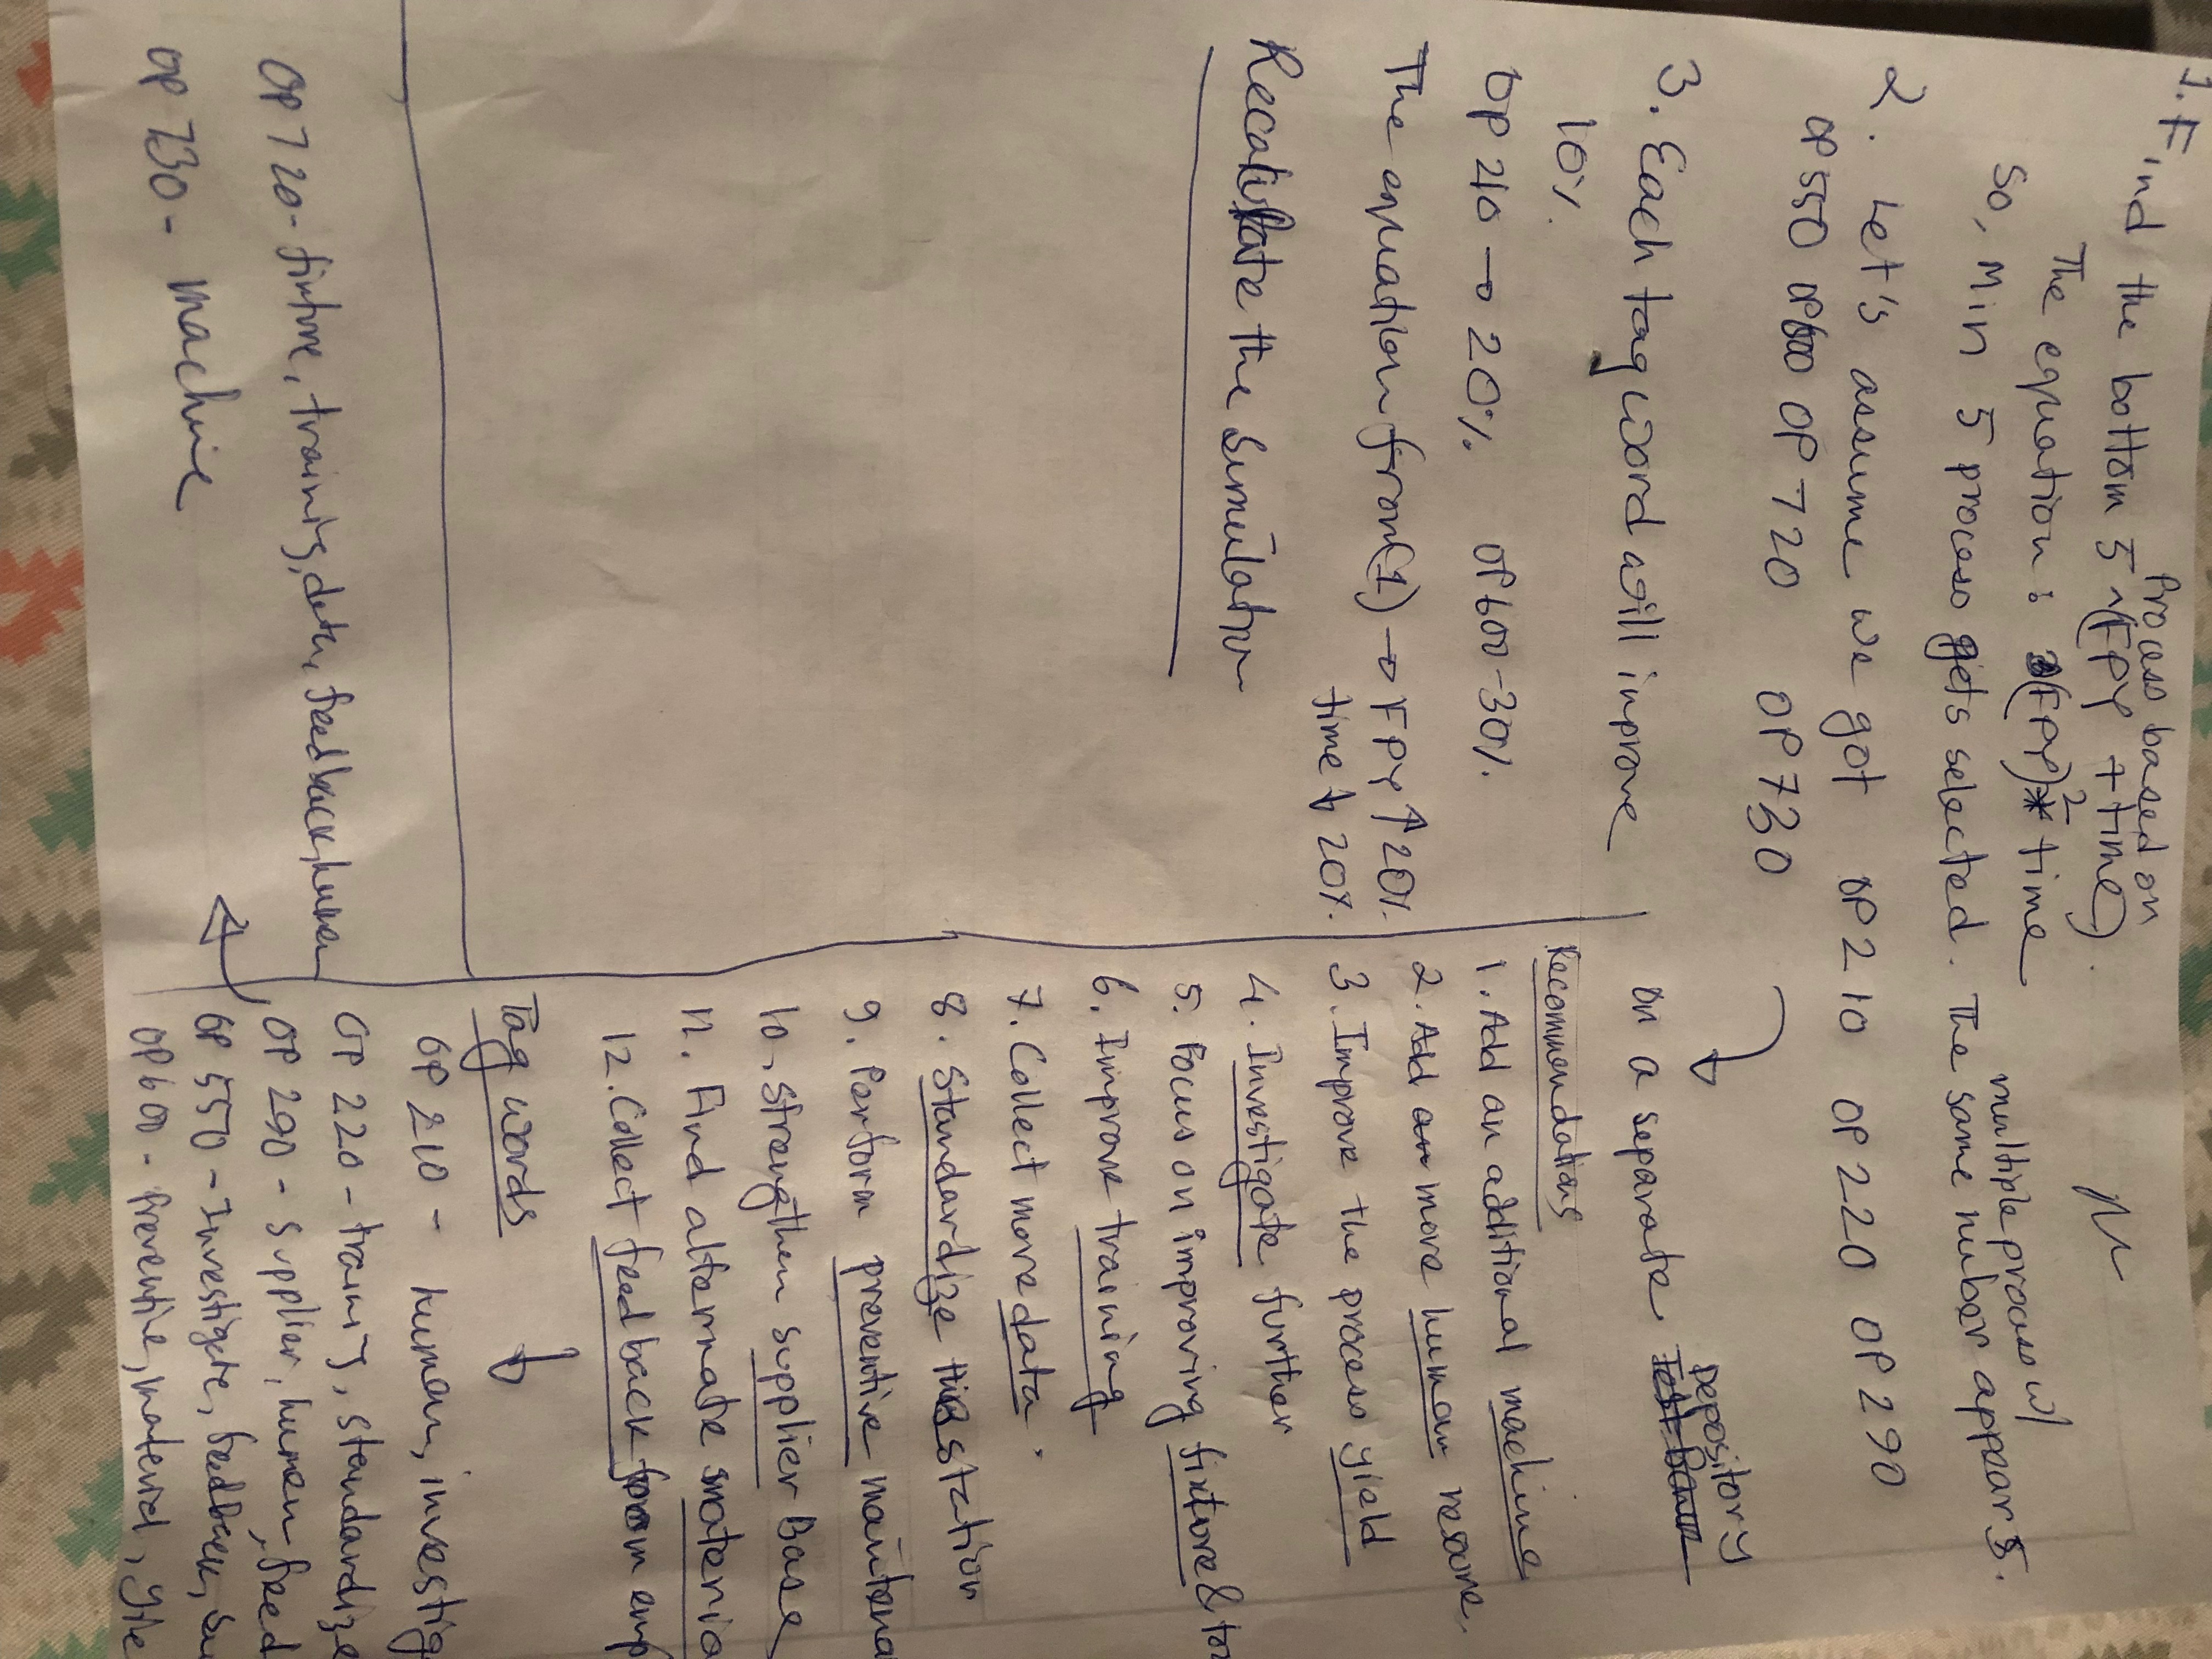 1. Find the bottom 5 ^ Process based on (FPY + time).
The equation: (FPY)^2 * time
So, Min 5 process gets selected. The multiple process w/
same nuber appears.
2. Let's assume we got OP 210 OP 220 OP 290
OP 550 OP 600 OP 720 OP 730
on a separate Depository
3. Each tag word will inprove
10%.
OP 210 → 20%. OP 600 - 30%.
The equation from (1) → FPY ↑ 20%.
time ↓ 20%.
Recalculate the simulation
Recommendations
1. Add an additional machine
2. Add more human
3. Improve the process yield
4. Investigate further
5. Focus on improving fixture &
6. Improve training
7. Collect more data.
8. Standardize this station
9. Perform preventive
10. Strengthen supplier Base
11. Find alternate
12. Collect feedback from
Tag words
OP 210 - human,
OP 220 - training, standardize
OP 290 - supplier, human,
OP 550 - Investigate, feedback,
OP 600 - Preventive, material,
OP 720 - fixture, training, data, feedback, human
OP 730 - machine